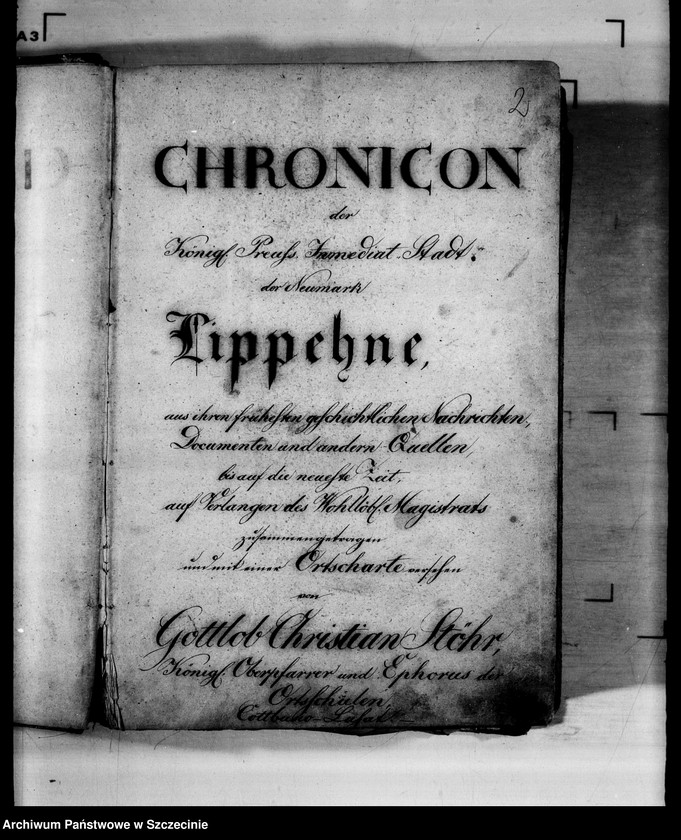 A3
2
CHRONICON
der
Königl. Preuss. Immediat-Stadt
der Neumark
Lippehne,
aus ihren frühesten geschichtlichen Nachrichten,
Documenten und andern Quellen,
bis auf die neueste Zeit,
auf Verlangen des Wohllöbl. Magistrats
zusammengetragen
und mit einer Ortscharte versehen
von
Gottlob Christian Stöhr,
Königl. Oberpfarrer und Ephorus der
Ortsschulen,
Archiwum Państwowe w Szczecinie